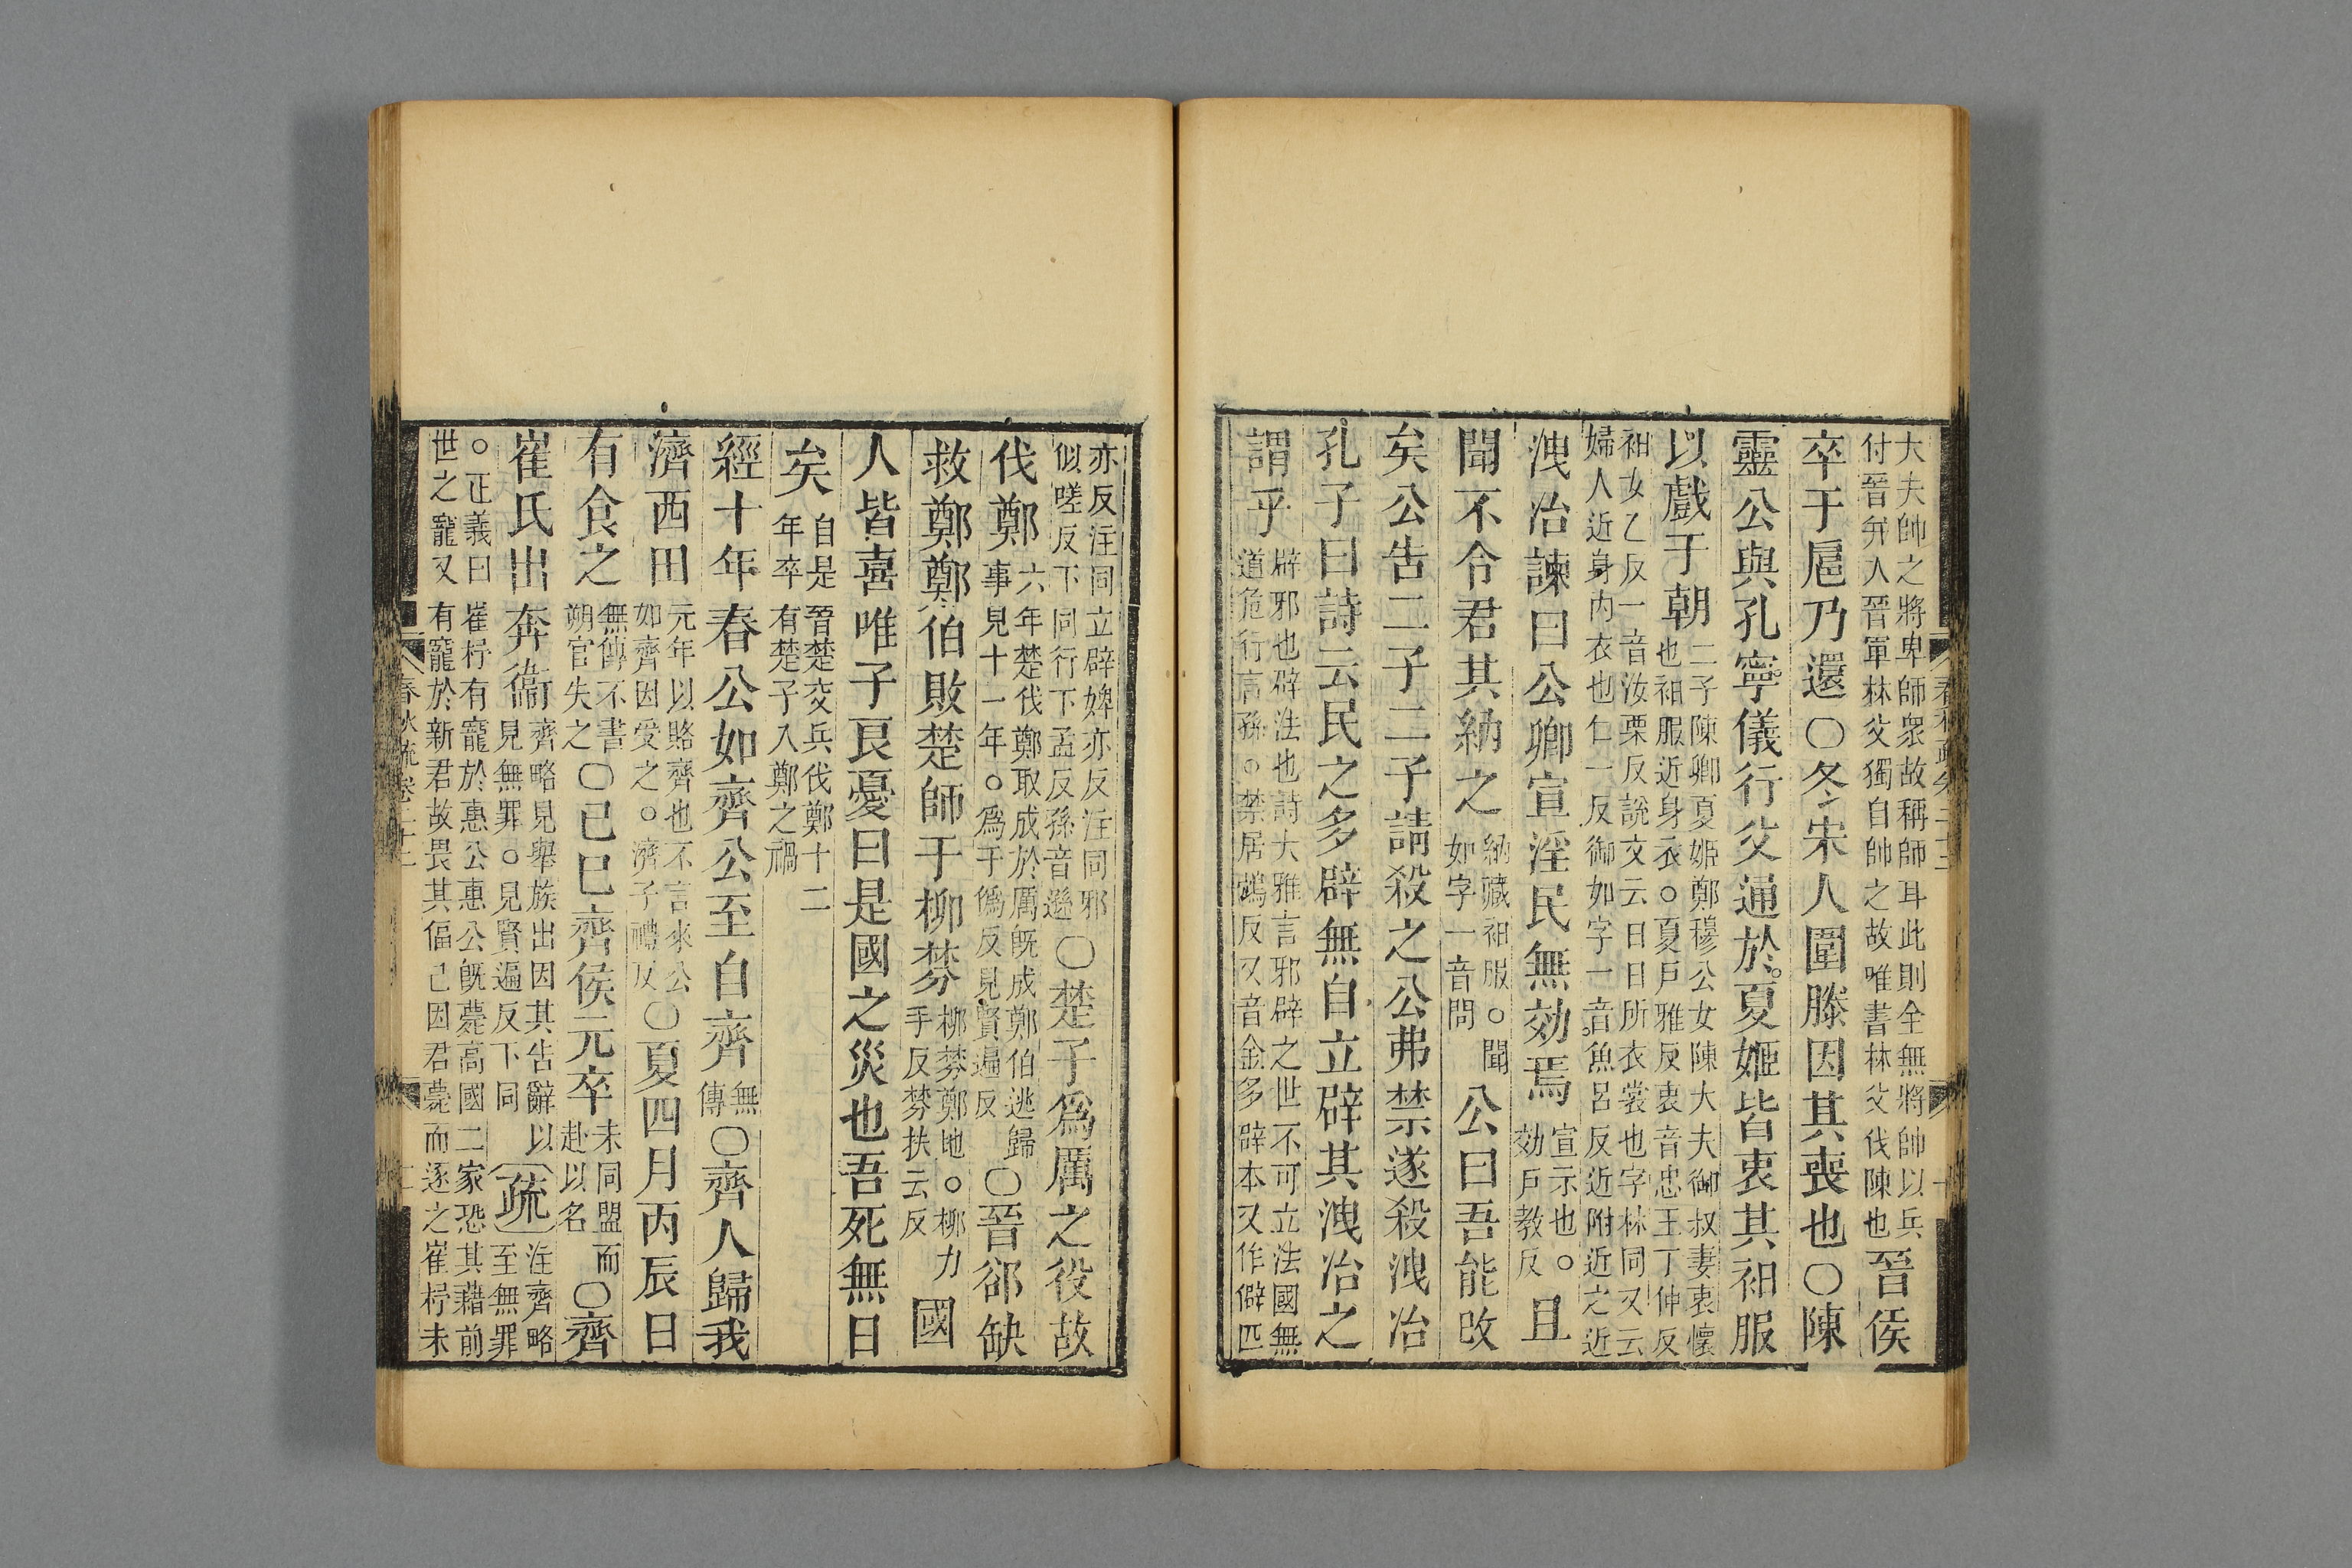 大夫帥之將卑師衆故稱師耳此則全無將帥以兵
付晉并入晉軍林父獨自帥之故唯書林父伐陳也
晉侯
卒于扈乃還○冬宋人圍滕因其喪也○陳
靈公與孔寧儀行父通於夏姬皆衷其衵服
以戲于朝
二子陳卿夏姬鄭穆公女陳大夫御叔妻衷懷
也衵服近身衣○夏戶雅反衷音忠王丁仲反
衵女乙反一音汝栗反說文云日日所衣裳也字林同又云
婦人近身内衣也仁一反御如字一音魚呂反近附近之近
洩冶諫曰公卿宣淫民無効焉
宣示也○
効戶教反
且
聞不令君其納之
納藏衵服○聞
如字一音問
公曰吾能改
矣公告二子二子請殺之公弗禁遂殺洩冶
孔子曰詩云民之多辟無自立辟其洩冶之
謂乎
辟邪也辟法也詩大雅言邪辟之世不可立法國無
道危行言孫○禁居鴆反又音金多辟本又作僻匹
亦反注同立辟婢亦反注同邪
似嗟反下同行下孟反孫音遜
○楚子爲厲之役故
伐鄭
六年楚伐鄭取成於厲旣成鄭伯逃歸
事見十一年○爲于僞反見賢遍反
○晉郤缺
救鄭鄭伯敗楚師于柳棼
柳棼鄭地○柳力
手反棼扶云反
國
人皆喜唯子良憂曰是國之災也吾死無日
矣
自是晉楚交兵伐鄭十二
年卒有楚子入鄭之禍
經十年春公如齊公至自齊
無
傳
○齊人歸我
濟西田
元年以賂齊也不言來公
如齊因受之○濟子禮反
○夏四月丙辰日
有食之
無傳不書
朔官失之
○己巳齊侯元卒
未同盟而
赴以名
○齊
崔氏出奔衞
齊略見舉族出因其告辭以
見無罪○見賢遍反下同
疏
注齊略
至無罪
○正義曰崔杼有寵於惠公惠公旣薨高國二家恐其藉前
世之寵又有寵於新君故畏其偪己因君薨而逐之崔杼未